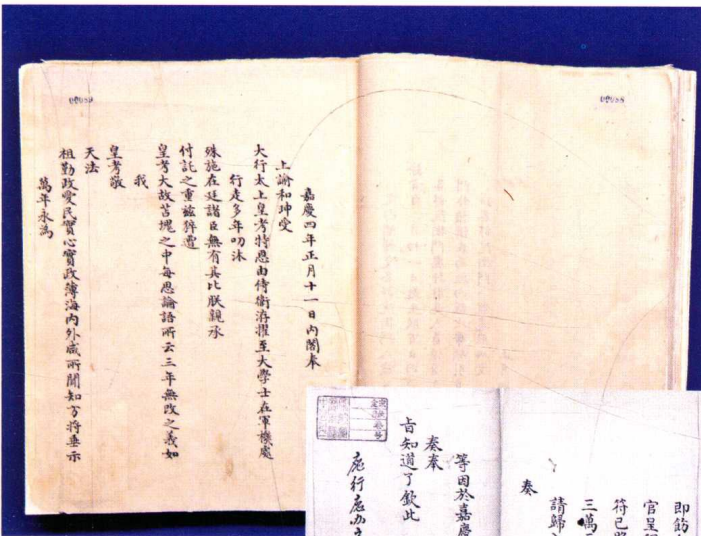 嘉慶四年正月十一日內閣奉
上諭和珅受
大行太上皇考特恩由侍衛洊擢至大學士在軍機處
行走多年叨沐
殊施在廷諸臣無有其比朕親承
付託之重茲猝遭
皇考大故苫塊之中每思論語所云三年無改之義如
我
皇考敬
天法
祖勤政愛民實心實政薄海內外咸所聞知方將垂示
萬年永為
即飭
官呈
符已
三萬
請歸
奏
等因於嘉慶
奏奉
旨知道了欽此
應行應辦